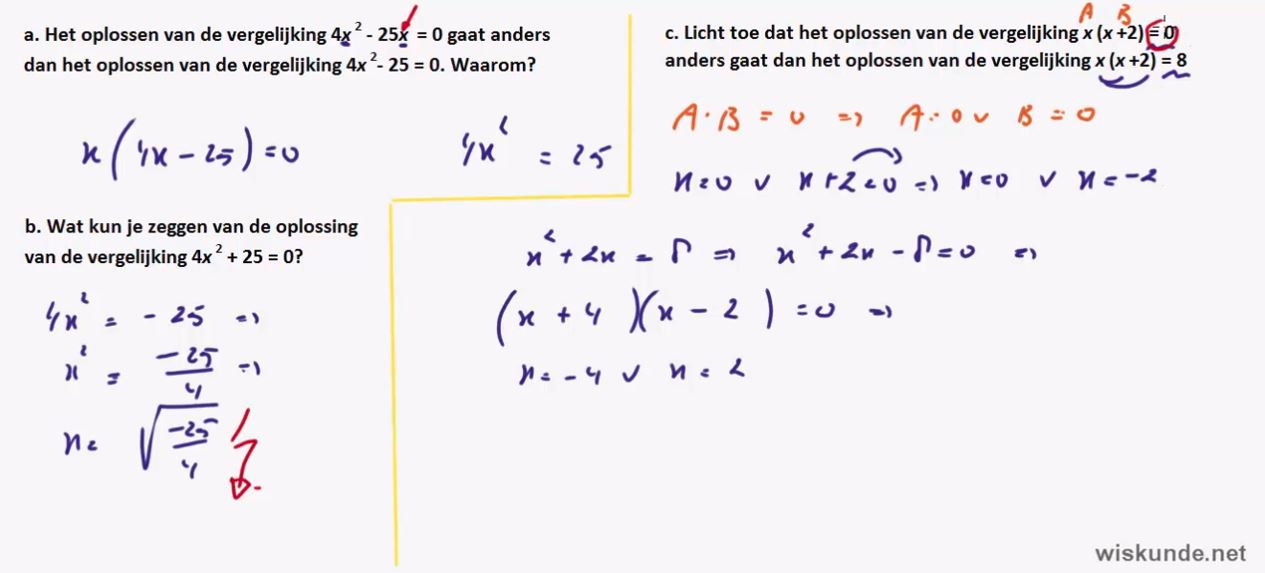 a. Het oplossen van de vergelijking 4x² - 25x = 0 gaat anders
dan het oplossen van de vergelijking 4x² - 25 = 0. Waarom?
x(4x - 25) = 0
4x² = 25
b. Wat kun je zeggen van de oplossing
van de vergelijking 4x² + 25 = 0?
4x² = - 25 =>
x² = -25/4 =>
x = √(-25/4)
A B
c. Licht toe dat het oplossen van de vergelijking x (x +2) = 0
anders gaat dan het oplossen van de vergelijking x (x +2) = 8
A · B = 0 => A = 0 v B = 0
x = 0 v x + 2 = 0 => x = 0 v x = -2
x² + 2x = 8 => x² + 2x - 8 = 0 =>
(x + 4)(x - 2) = 0 =>
x = -4 v x = 2
wiskunde.net